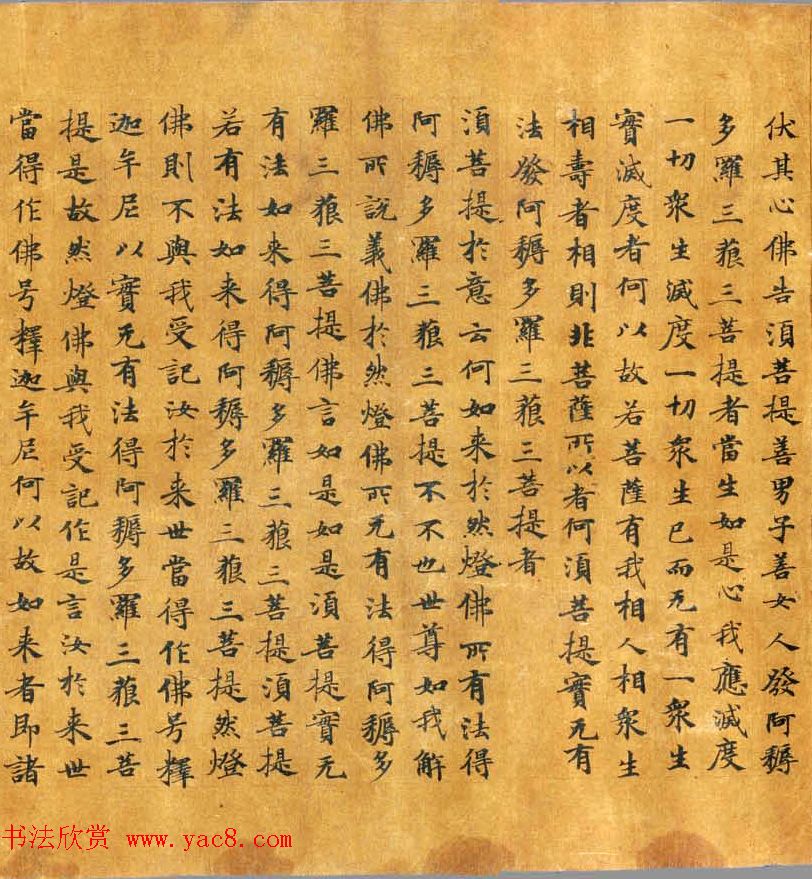 伏其心佛告湏菩提善男子善女人發阿耨
多羅三藐三菩提者當生如是心我應滅度
一切衆生滅度一切衆生已而无有一衆生
實滅度者何以故若菩薩有我相人相衆生
相壽者相則非菩薩所以者何湏菩提實无有
法發阿耨多羅三藐三菩提者
湏菩提於意云何如来於然燈佛所有法得
阿耨多羅三藐三菩提不不也世尊如我解
佛所說義佛於然燈佛所无有法得阿耨多
羅三藐三菩提佛言如是如是湏菩提實无
有法如来得阿耨多羅三藐三菩提湏菩提
若有法如来得阿耨多羅三藐三菩提然燈
佛則不與我受記汝於来世當得作佛号釋
迦牟尼以實无有法得阿耨多羅三藐三菩
提是故然燈佛與我受記作是言汝於来世
當得作佛号釋迦牟尼何以故如来者即諸
书法欣赏 www.yac8.com